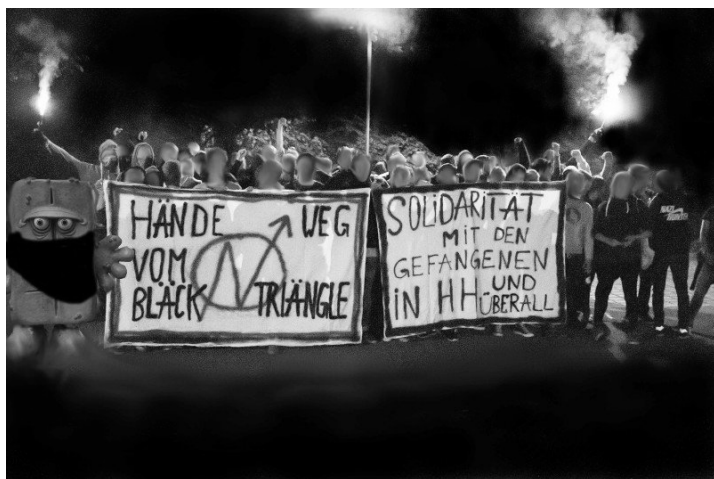 HÄNDE WEG
VOM
BLÄCK TRIÄNGLE
SOLiDARiTÄT
MiT DEN
GEFANGENEN
iN HH UND
ÜBERALL
NAZI